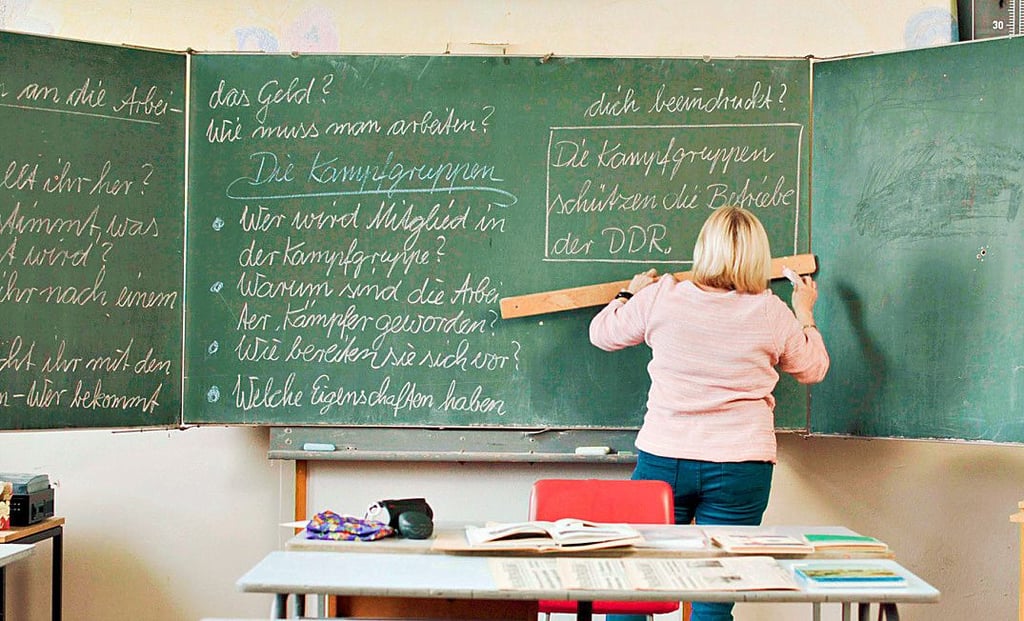 an die Arbei-
ihr her?
was
wird?
ihr nach einem
ihr mit den
Wer bekommt
das Geld?
Wie muss man arbeiten?
Die Kampfgruppen
Wer wird Mitglied in
der Kampfgruppe?
Warum sind die Arbei
ter „Kämpfer geworden?
Wie bereiten sie sich vor?
Welche Eigenschaften haben
dich beeindruckt?
Die Kampfgruppen
schützen die Betriebe
der DDR.
30